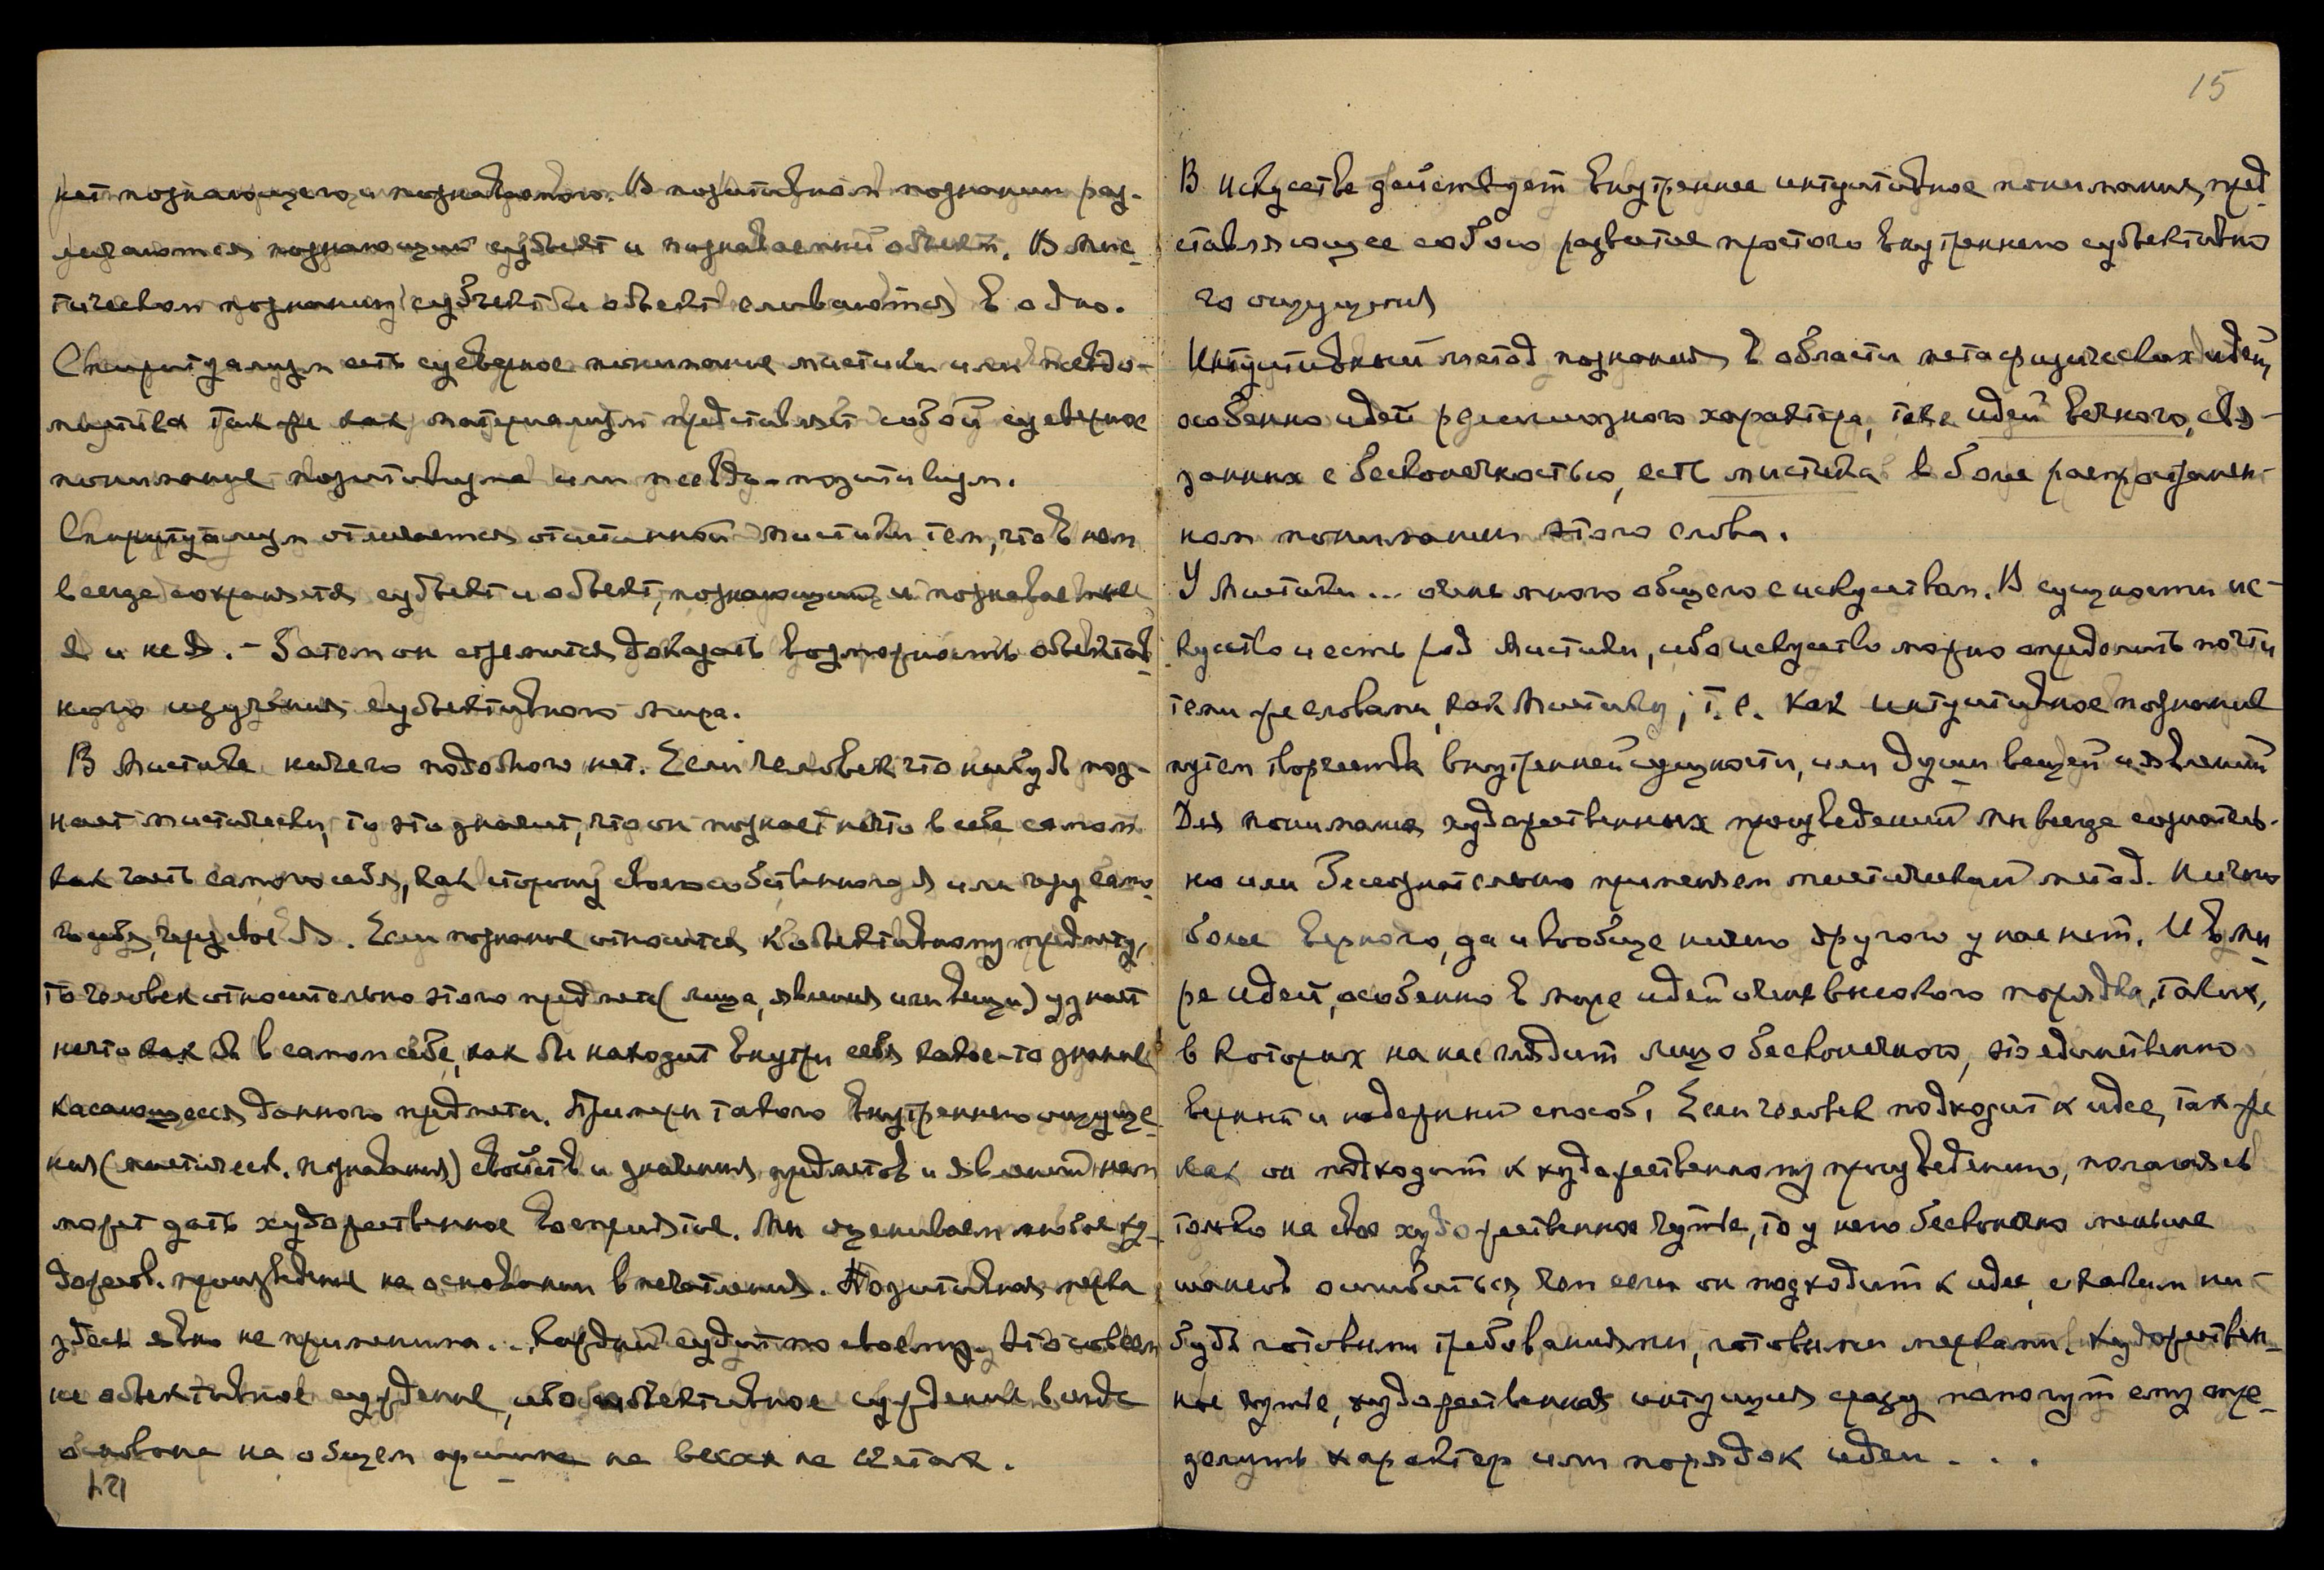 нет познающего и познаваемого. В позитивном познании раз-
личаются познающий субъект и познаваемый объект. В мис-
тическом познании субъект и объект сливаются в одно.
Спиритуализм есть суеверное понимание мистики или псевдо-
мистика так же как материализм представляет собой суеверное
понимание позитивизма или псевдо-позитивизм.
Спиритуализм отличается от истинной мистики тем, что в нем
всегда сохранятся субъект и объект, познающий и познаваемые
Я и не Я. – Затем он стремится доказать возможность объектив-
ного изучения субъективного мира.
В мистике ничего подобного нет. Если человек что нибудь поз-
нает мистически, то это значит, что он познает нечто в себе самом
как часть самого себя, как сторону своего собственного Я или через само
го себя, через свое Я. Если познание относится к объективному предмету,
то человек относительно этого предмета (лица, явления или вещи) узнает
нечто как бы в самом себе, как бы находит внутри себя какое-то знание
касающееся данного предмета. Примеры такого внутреннего ощуще-
ния (мистическ. познавания) свойств и значения предметов и явлений нам
может дать художественное восприятие. Мы оцениваем любое ху-
дожеств. произведение на основании впечатления. Позитивная мерка
здесь явно не применима... Каждый судит по своему. Это совсем
не объективное суждение, ибо объективное суждение всегда
основано на общем аршине на весах на счетах.
124
15
В искусстве действует внутреннее интуитивное понимание, пред
ставляющее собою развитие простого внутреннего субъективно
го ощущения
Интуитивный метод познания в области метафизических идей,
особенно идей религиозного характера, т.е. идей вечного, свя-
занных с бесконечностью, есть мистика в более распространен-
ном понимании этого слова.
У мистики... очень много общего с искусством. В сущности ис-
кусство и есть род мистики, ибо искусство можно определить почти
теми же словами, как мистику, т.е. как интуитивное познание
путем творчества внутренней сущности, или души вещей и явлений
Для понимания художественных произведений мы всегда сознатель-
но или бессознательно применяем мистический метод. Ничего
более верного, да и вообще ничего другого у нас нет. И в ми
ре идей, особенно в мире идей очень высокого порядка, таких,
в которых на нас глядит лицо бесконечного, это единственно
верный и надежный способ. Если человек подходит к идее, так же
как он подходит к художественному произведению, полагаясь
только на свое художественное чутье, то у него бесконечно меньше
шансов ошибиться, чем если он подходит к идее с каким ни-
будь готовыми требованиями, готовыми мерками. Художествен-
ное чутье, художественная интуиция сразу помогут ему опре-
делить характер или порядок идеи . . .